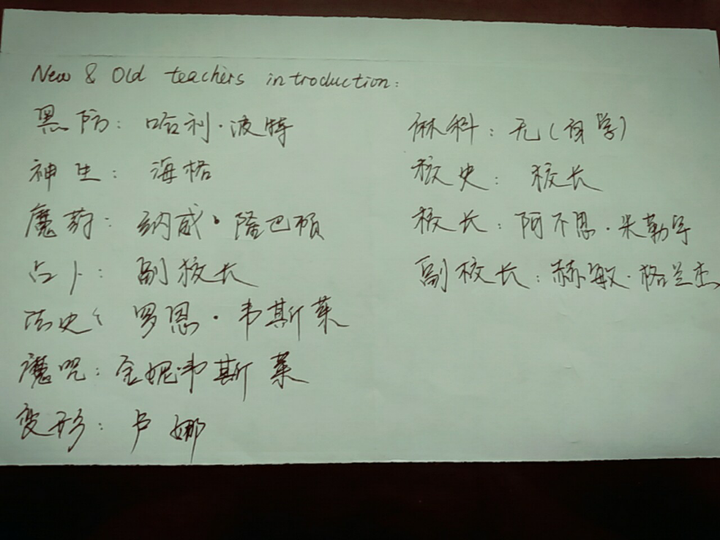 New & Old teachers introduction:
黑防：哈利·波特
神生：海格
魔药：纳威·隆巴顿
占卜：副校长
法史：罗恩·韦斯莱
魔咒：金妮韦斯莱
变形：卢娜
麻科：无(自学)
校史：校长
校长：阿不思·米勒
副校长：赫敏·格兰杰